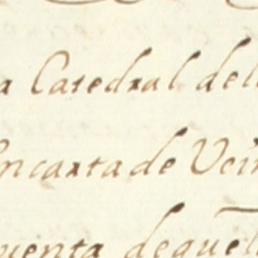 a Catedral del
encarta de Vein
uenta dequel